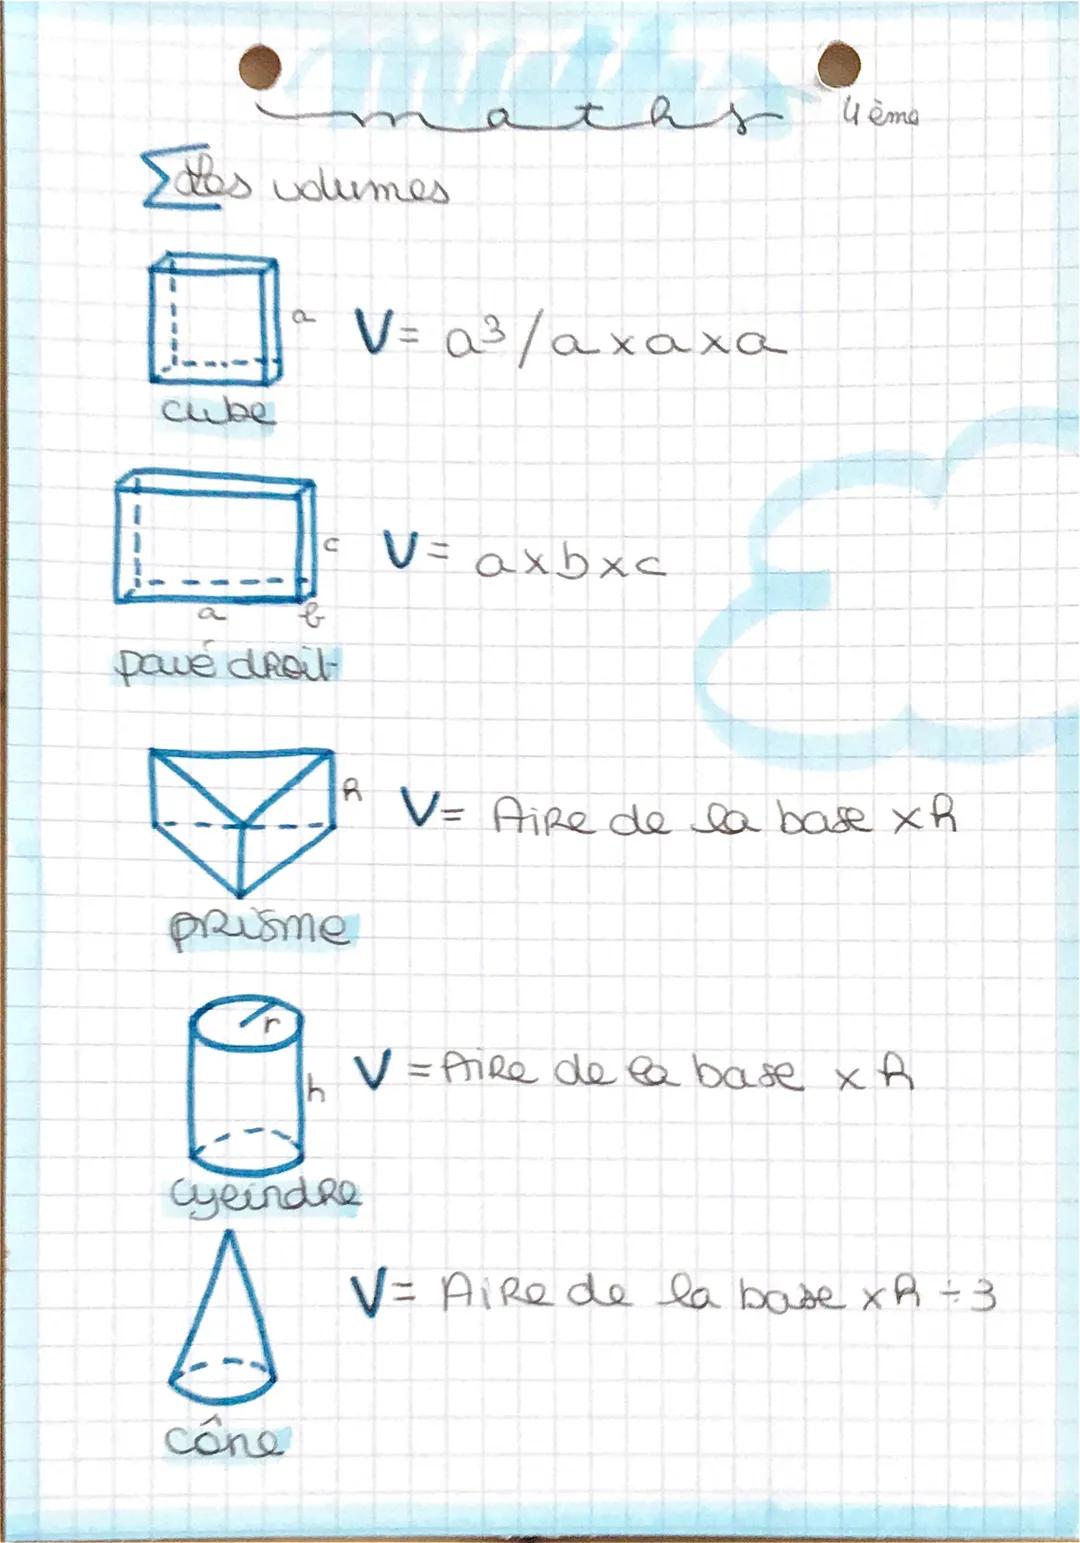 maths
4ème
Les volumes
a
V= a³/axaxa
cube
c
V= axbxc
a
b
pavé droit
h
V= Aire de la base xh
prisme
r
h
V = Aire de la base x h
cylindre
V= Aire de la base xh ÷3
cône